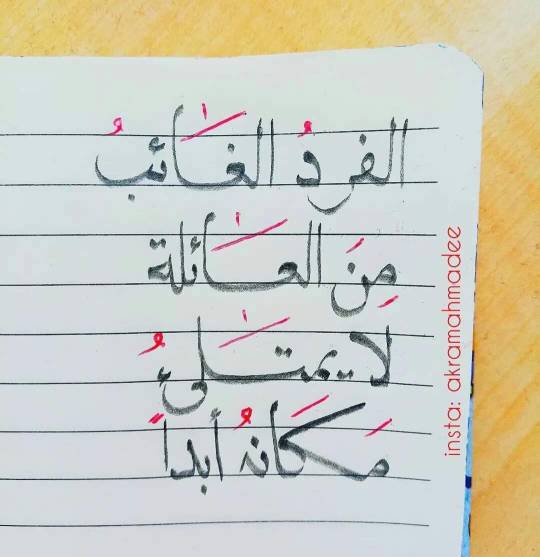 الفردُ الغَائبُ
مِنَ العَائلة
لا يمتَلىُٔ
مَكَانهُ أبداً
insta: akramahmadee